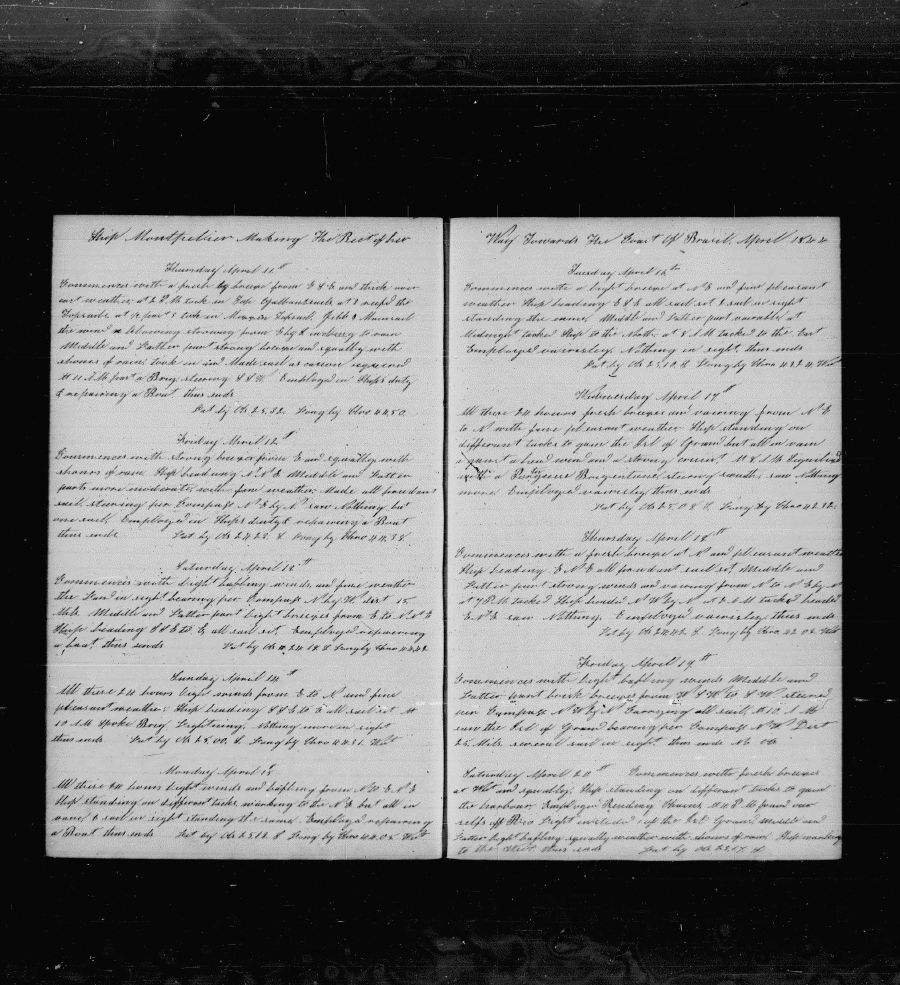 Ship Montpelier Making The Rest of her
Thursday April 11th
Commences with a fresh breeze from E S E and thick over
cast weather at 2 P M took in Top Gallansails at 3 reefd the
Topsails at 1/2 past 5 took in Mizzen Topsail Jibb & Mainsail
the wind blowing strong from E by S inclining to rain
Middle and Latter part strong breeze and squally with
showers of rain took in and Made sail as occasion required
At 11 A M past a Brig steering S S W Employed in Ships duty
& repairing a Boat thus ends
Lat by Ob 25.32 Long by Chro 44.50
Friday April 12th
Commences with strong breeze from E and squally with
showers of rain Ship heading N N E Middle and Latter
parts more moderate with fine weather Made all prudent
sail steering per Compass N E by N saw Nothing but
one sail Employed in Ships duty & repairing a Boat
thus ends Lat by Ob 24.28 S Long by Chro 44.38
Saturday April 13th
Commences with light bafling winds and fine weather
the Land in sight bearing per Compass N by W dist 15
Mile Middle and Latter part light breezes from E to N N E
Ship heading S S E to E all sail set Employed repairing
a boat thus ends Lat by Ob 24.18 S Long by Chro 44.42
Sunday April 14th
All these 24 hours light winds from E to N and fine
pleasant weather Ship heading S S E to E all sail set At
10 A M Spoke Brig Lightning Nothing more in sight
thus ends Lat by Ob 25.00 S Long by Chro 44.31 West
Monday April 15
All these 24 hours light winds and bafling from N to E N E
Ship standing on different tacks working to the N E but all in
vane & sail in sight standing the same Employed repairing
a Boat thus ends Lat by Ob S Long by Chro 44.05 West
Way Towards The Coast Of Brazil April 1844
Tuesday April 16th
Commences with a light breeze at N E and fine pleasant
weather Ship heading E S E all sail set & sail in sight
standing the same Middle and Latter part variable at
Midnight tacked Ship to the North at 8 A M tacked to the East
Employed variously Nothing in sight thus ends
Lat by Ob 25.10 S Long by Chro 43.24 West
Wednesday April 17th
All these 24 hours fresh breezes and varying from N E
to N with fine pleasant weather Ship standing on
different tacks to gain the Isl of Grand but all in vain
against a head wind and a strong current At 8 A M
with a Brigentine steering south saw Nothing
more Employed variously thus ends
Lat by Ob 25.08 S Long by Chro 42.32
Thursday April 18th
Commences with a fresh breeze at N and pleasant weather
Ship heading E N E all prudent sail set Middle and
Latter part strong winds and varying from N to N E by N
at 7 P M tacked Ship headed N W by N A 2 A M tacked headed
E N E saw Nothing Employed variously thus ends
Lat by Ob 24.42 S Long by Chro 42.05 West
Friday April 19th
Commences with light bafling winds Middle and
Latter part brisk breezes from W S W to S W steered
per Compass N W by N Carrying all sail At 10 A M
saw the Isl of Grand bearing per Compass N W Dist
25 Mile several sail in sight thus ends No Ob
Saturday April 20th Commences with fresh breezes
at West and squally Ship standing on different tacks to gain
the harbour Employd Bending Chains At 4 P M found our
selfs off Rio Light instead of the Isl Grand Middle and
Latter light bafling squally weather with showers of rain Ship working
to the West thus ends Lat by Ob 23.17 S